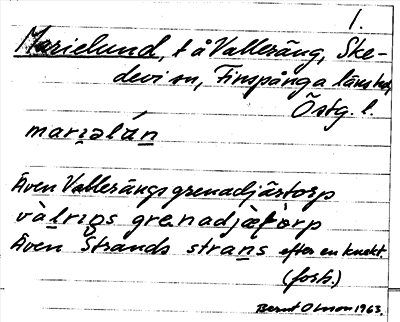 1.
Marielund, t å Valleräng, Ske-
devi sn, Finspånga läns hd,
Östg. l.
marɪəlɑ́n
Även Vallerängs grenadjärstorp
vàlrɪŋs grenadjæʈòrp
Även Strands strans efter en knekt.
(forts.)
Bernt Olsson 1963.